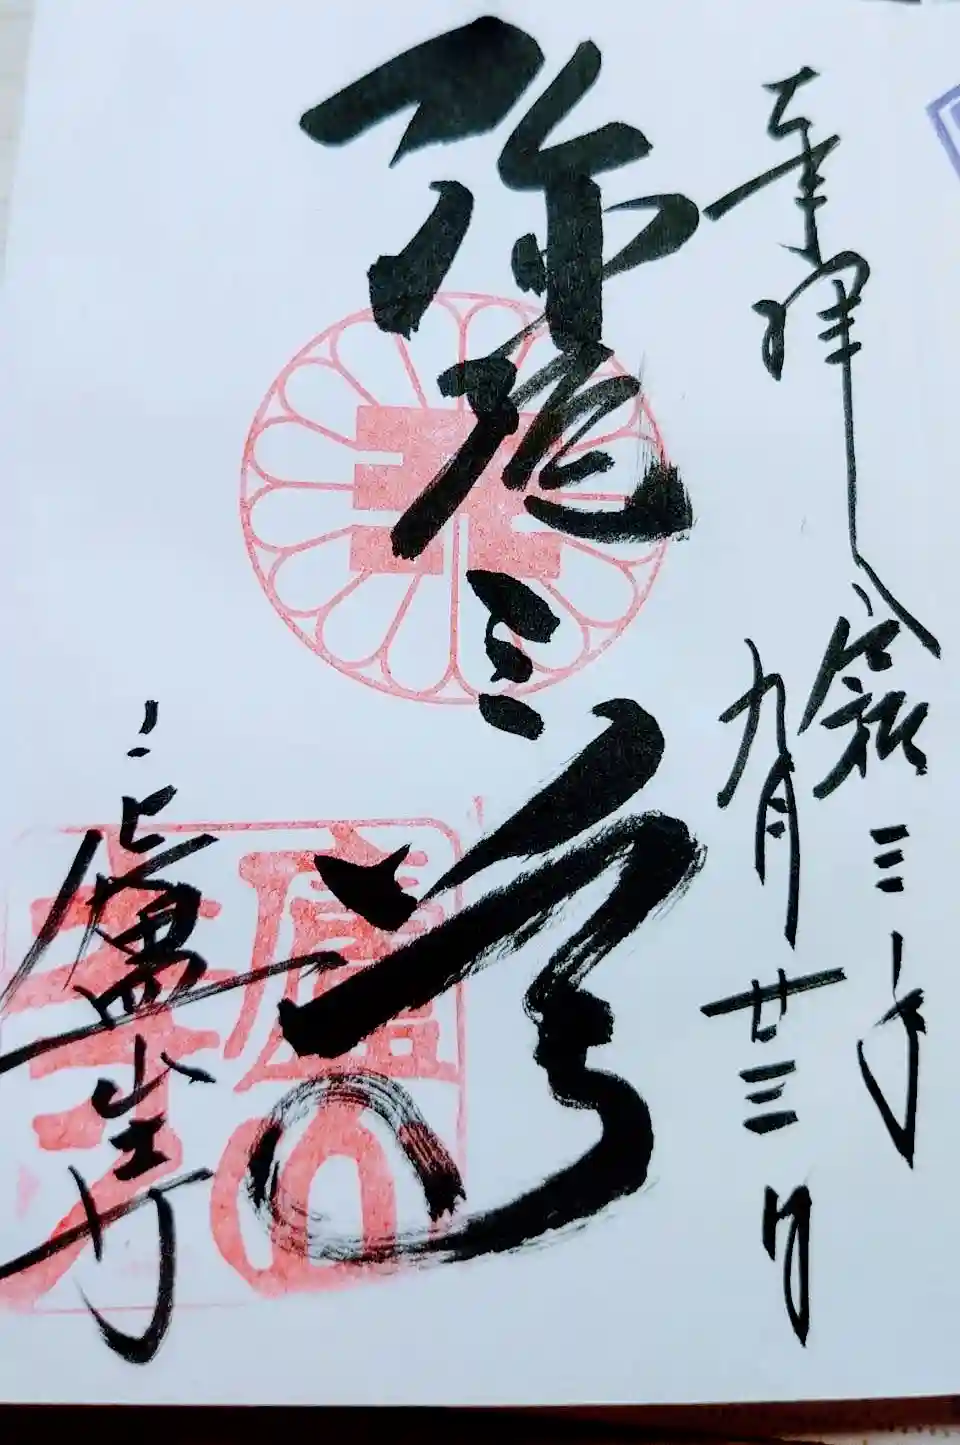 奉拝
令和三年
九月廿三日
弥陀三尊
廬山寺
廬山寺